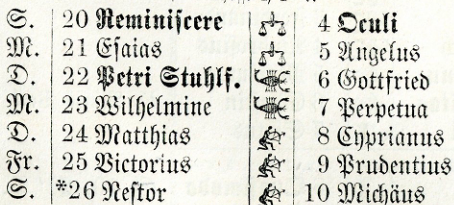 S. 20 Reminiscere 4 Oculi
M. 21 Esaias 5 Angelus
D. 22 Petri Stuhlf. 6 Gottfried
M. 23 Wilhelmine 7 Perpetua
D. 24 Matthias 8 Cyprianus
Fr. 25 Victorius 9 Prudentius
S. *26 Nestor 10 Michäus